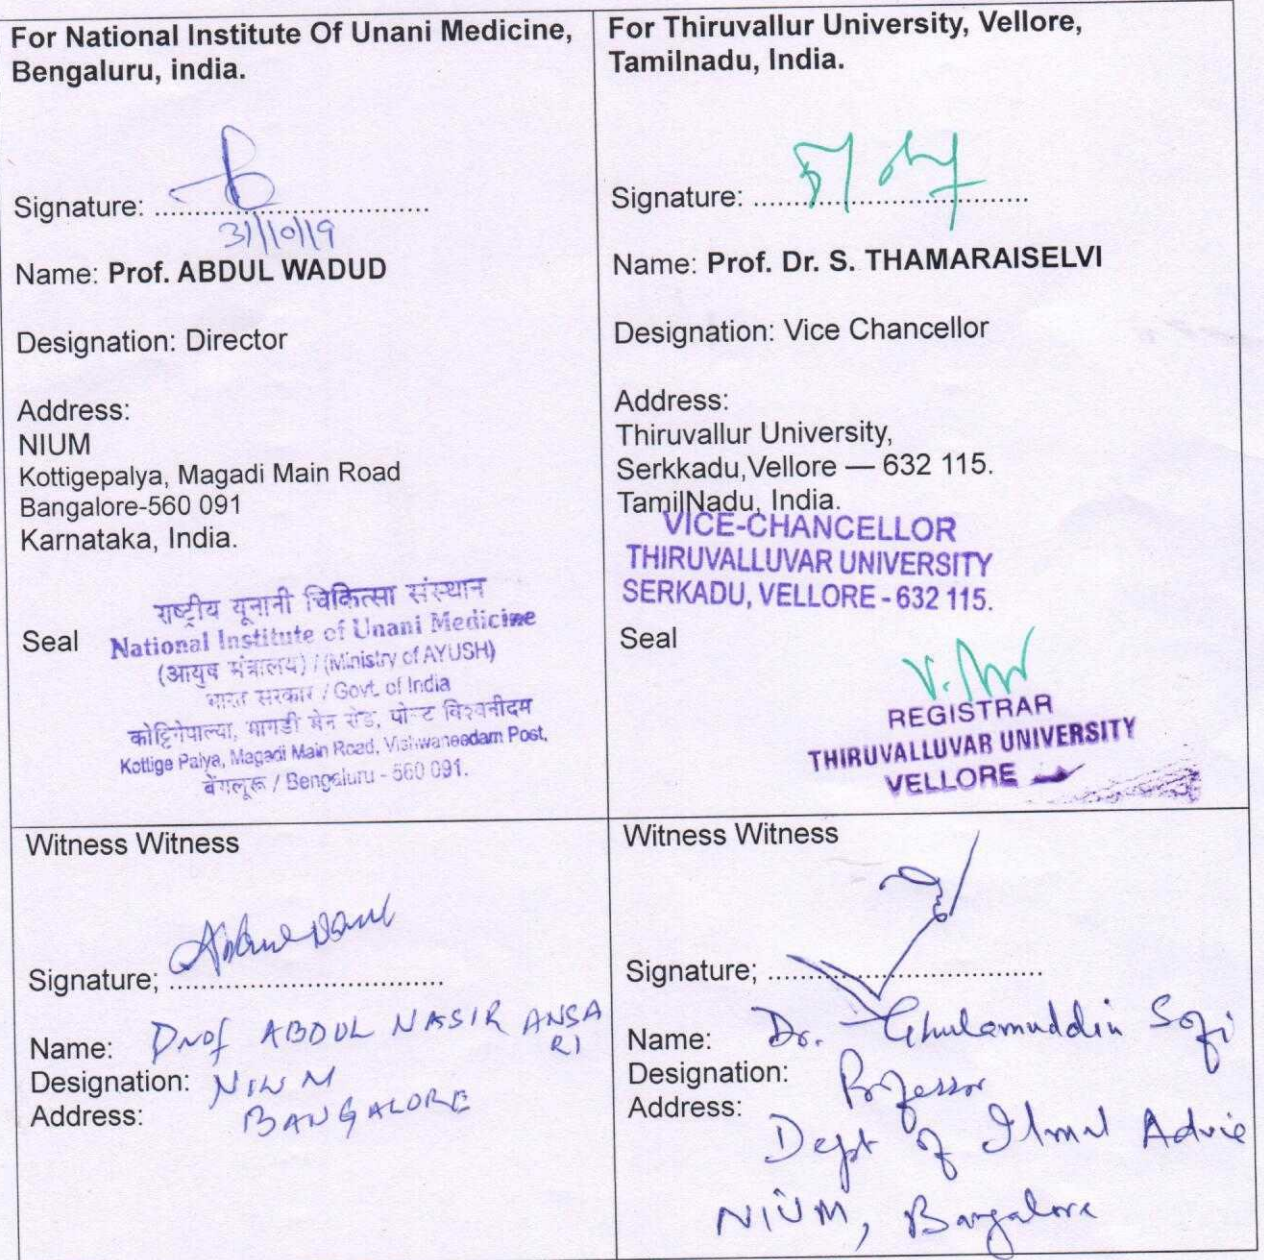 For National Institute Of Unani Medicine,
Bengaluru, india.
Signature: ..................................
31/10/19
Name: Prof. ABDUL WADUD
Designation: Director
Address:
NIUM
Kottigepalya, Magadi Main Road
Bangalore-560 091
Karnataka, India.
Seal
राष्ट्रीय यूनानी चिकित्सा संस्थान
National Institute of Unani Medicine
(आयुष मंत्रालय) / (Ministry of AYUSH)
भारत सरकार / Govt. of India
कोट्टिगेपाल्या, मागडी मेन रोड, पोस्ट विश्वनीदम
Kottige Palya, Magadi Main Road, Vishwaneedam Post,
बेंगलूरू / Bengaluru - 560 091.
For Thiruvallur University, Vellore,
Tamilnadu, India.
Signature: ..................................
Name: Prof. Dr. S. THAMARAISELVI
Designation: Vice Chancellor
Address:
Thiruvallur University,
Serkkadu,Vellore — 632 115.
TamilNadu, India.
VICE-CHANCELLOR
THIRUVALLUVAR UNIVERSITY
SERKADU, VELLORE - 632 115.
Seal
REGISTRAR
THIRUVALLUVAR UNIVERSITY
VELLORE
Witness Witness
Signature; ..................................
Name: Prof ABDUL NASIR ANSA
RI
Designation: NIUM
Address: BANGALORE
Witness Witness
Signature; ..................................
Name: Dr. Ghulamuddin Sofi
Designation: Professor
Address: Dept of Ilmul Advie
NIUM, Bangalore